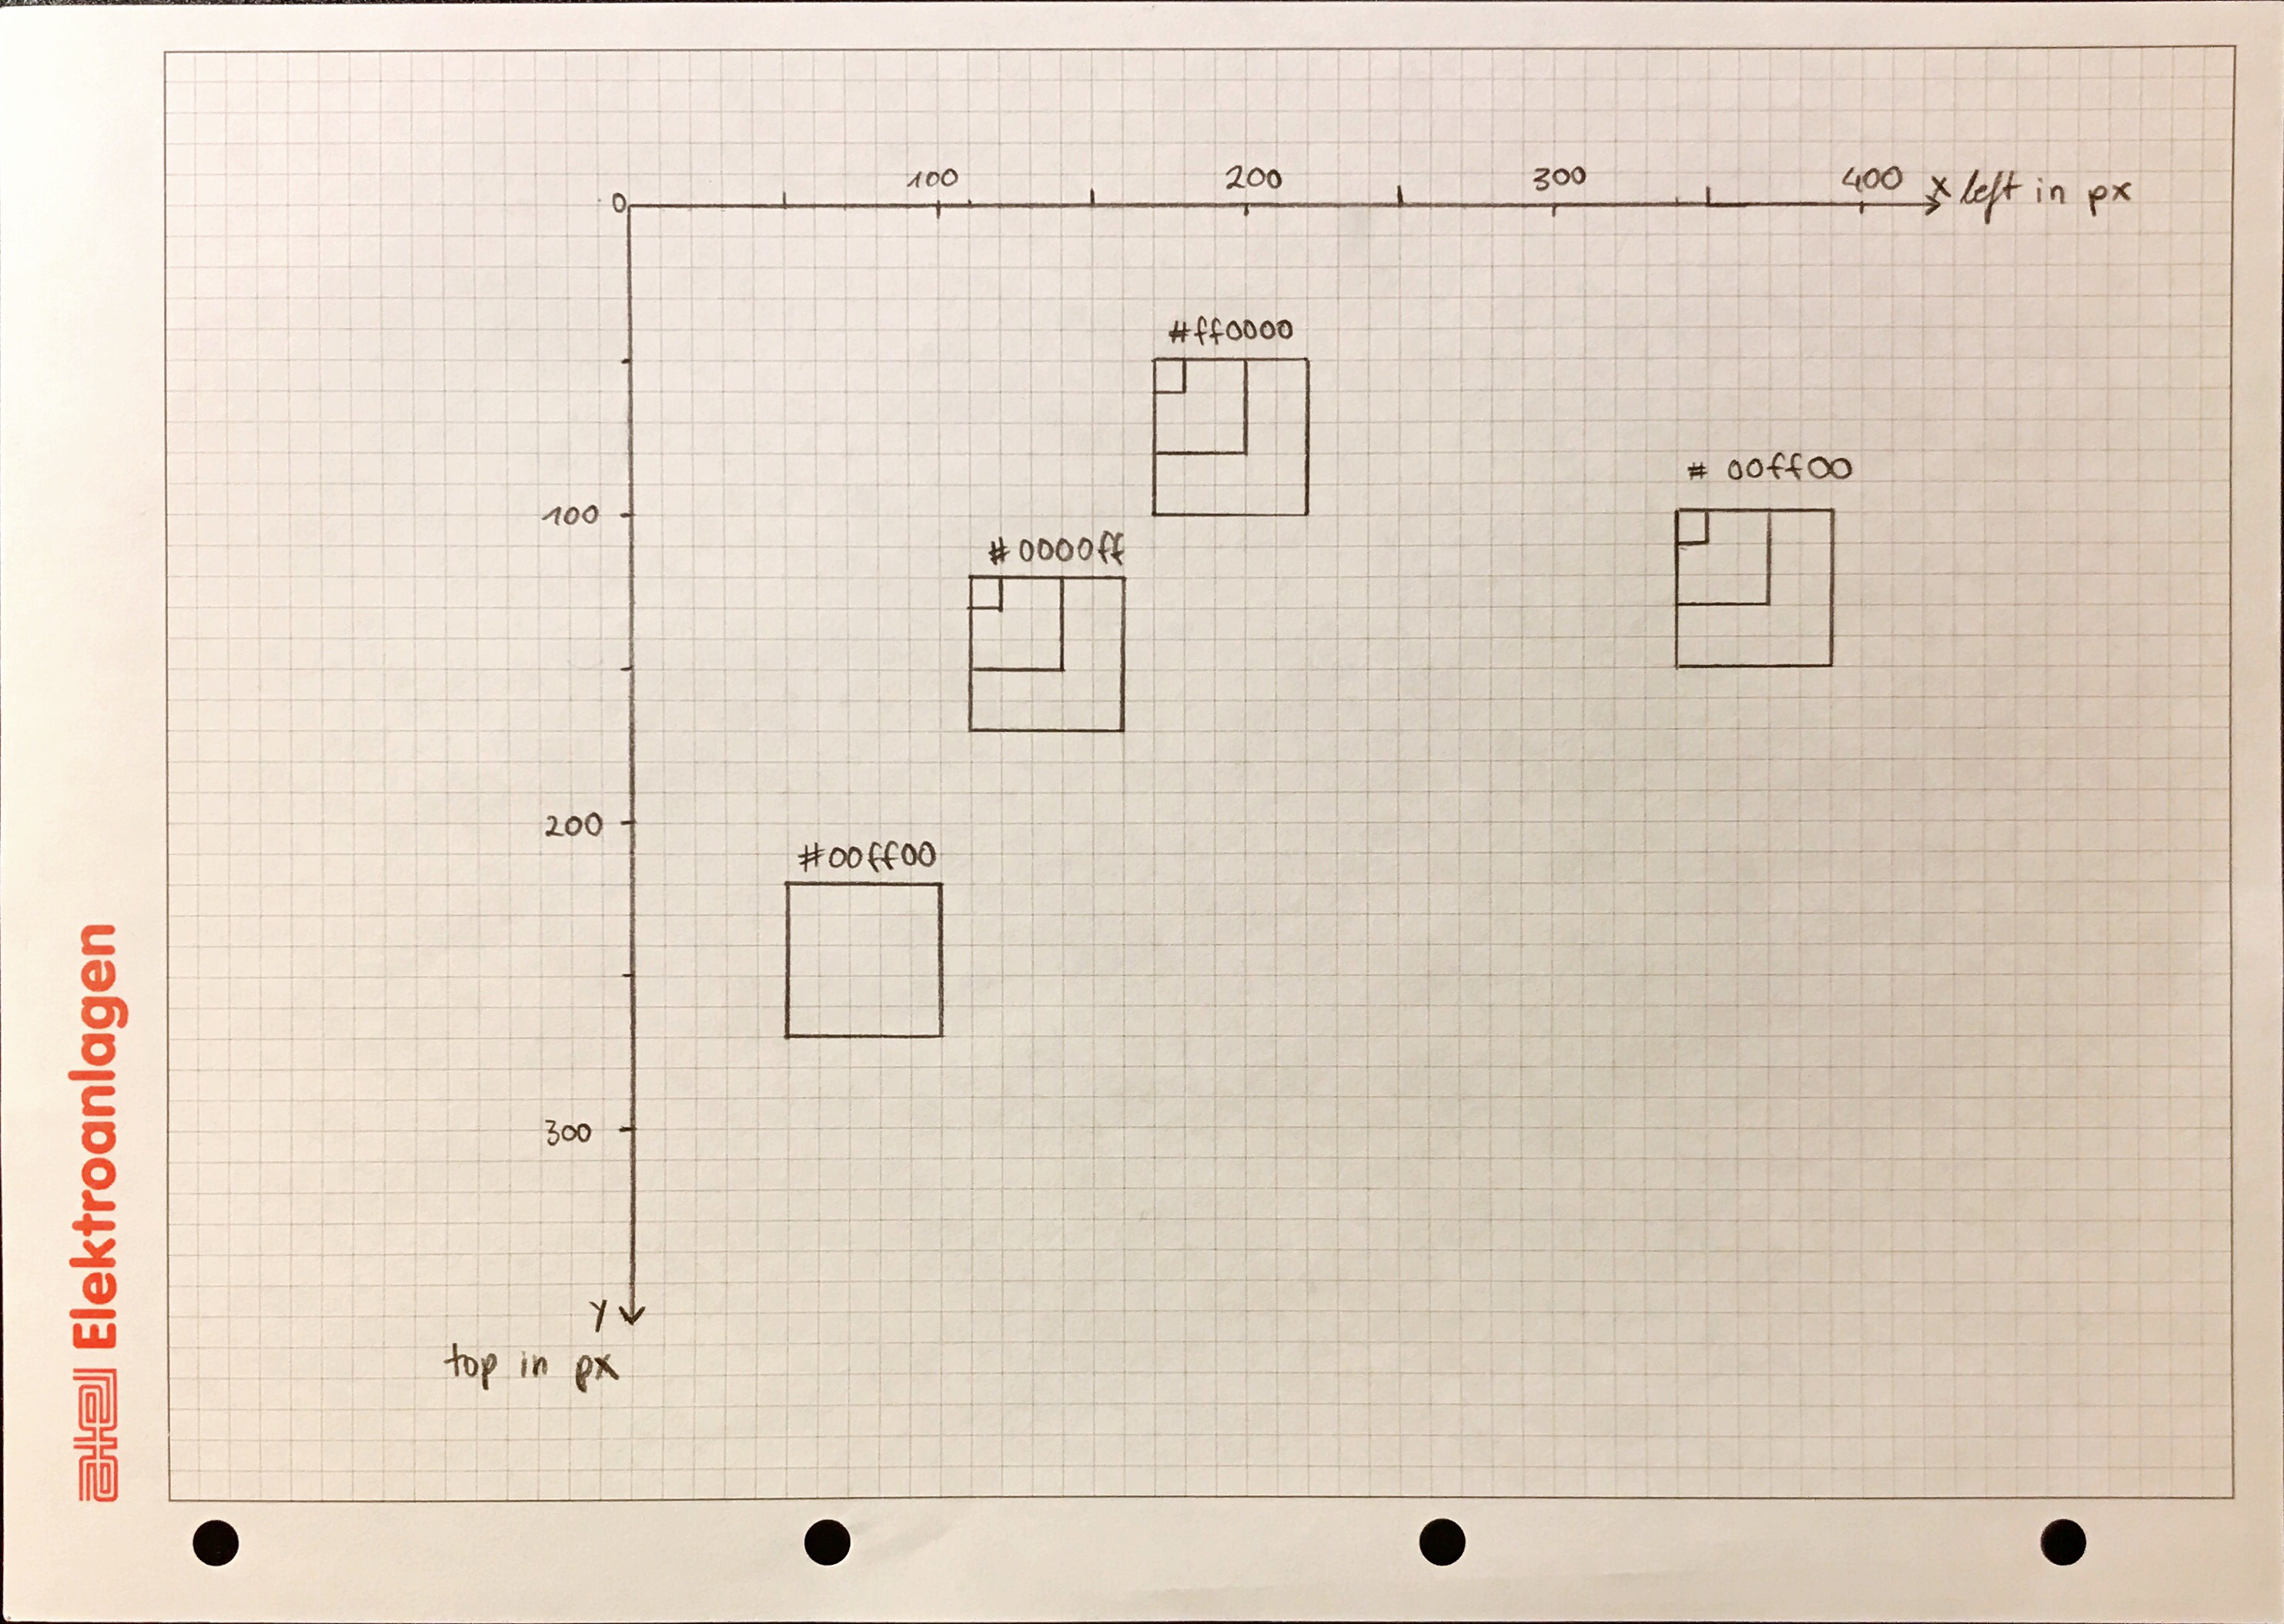 100 200 300 400 x left in px
0
#ff0000
# 00ff00
100
# 0000ff
200
#00ff00
300
y
top in px
Elektroanlagen